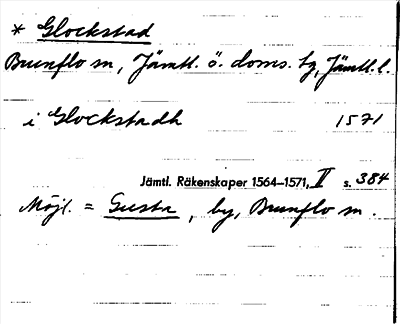 * Glockstad
Brunflo sn, Jämtl. ö. doms. tg, Jämtl. l.
i Glockstadh 1571
Jämtl. Räkenskaper 1564–1571, II s. 384
Möjl. = Gusta, by, Brunflo sn.